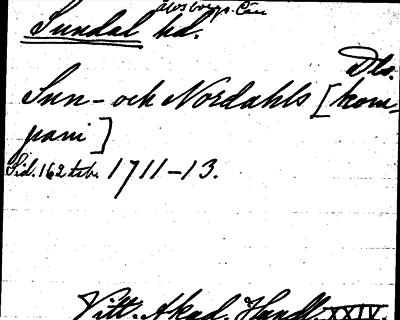 Älvsborgs. län
Sundal hd.
Dls.
Sun- och Nordahls [kom-
pani]
Sid. 162 tab. 1711-13.
Vitt. Akad. Handl. XXIV.